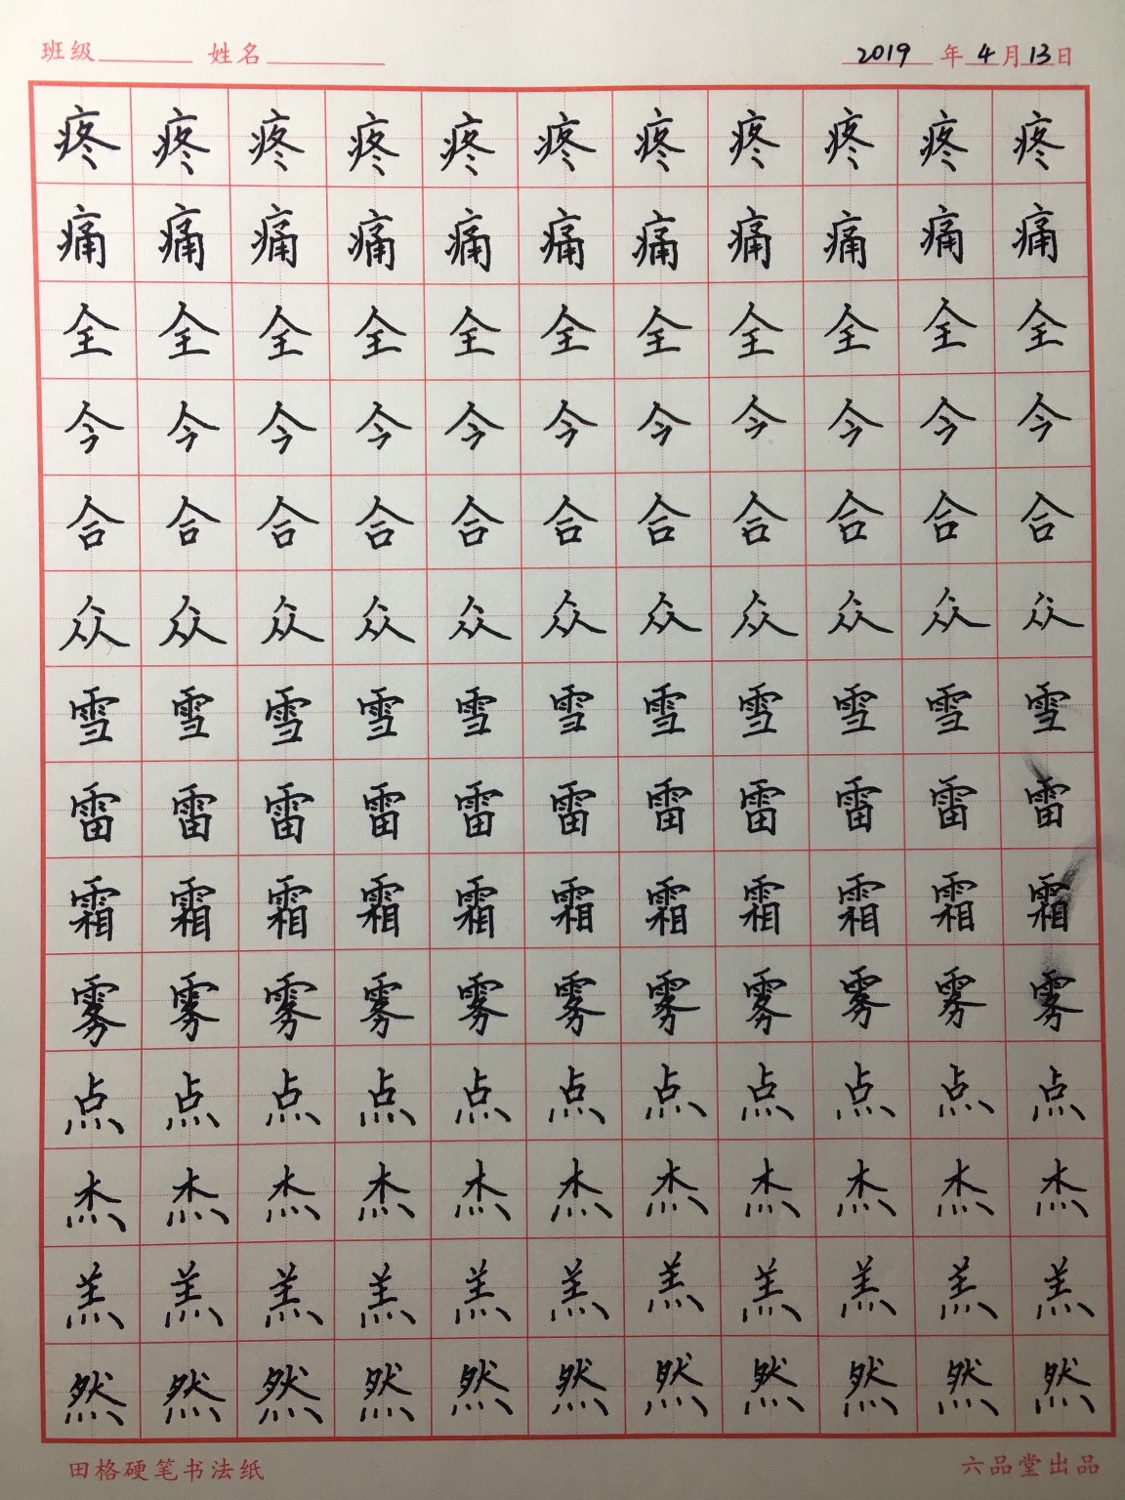 班级 姓名 2019 年 4 月 13 日
疼疼疼疼疼疼疼疼疼疼疼
痛痛痛痛痛痛痛痛痛痛痛
全全全全全全全全全全全
今今今今今今今今今今今
合合合合合合合合合合合
众众众众众众众众众众众
雪雪雪雪雪雪雪雪雪雪雪
雷雷雷雷雷雷雷雷雷雷雷
霜霜霜霜霜霜霜霜霜霜霜
雾雾雾雾雾雾雾雾雾雾雾
点点点点点点点点点点点
杰杰杰杰杰杰杰杰杰杰杰
羔羔羔羔羔羔羔羔羔羔羔
然然然然然然然然然然然
田格硬笔书法纸 六品堂出品